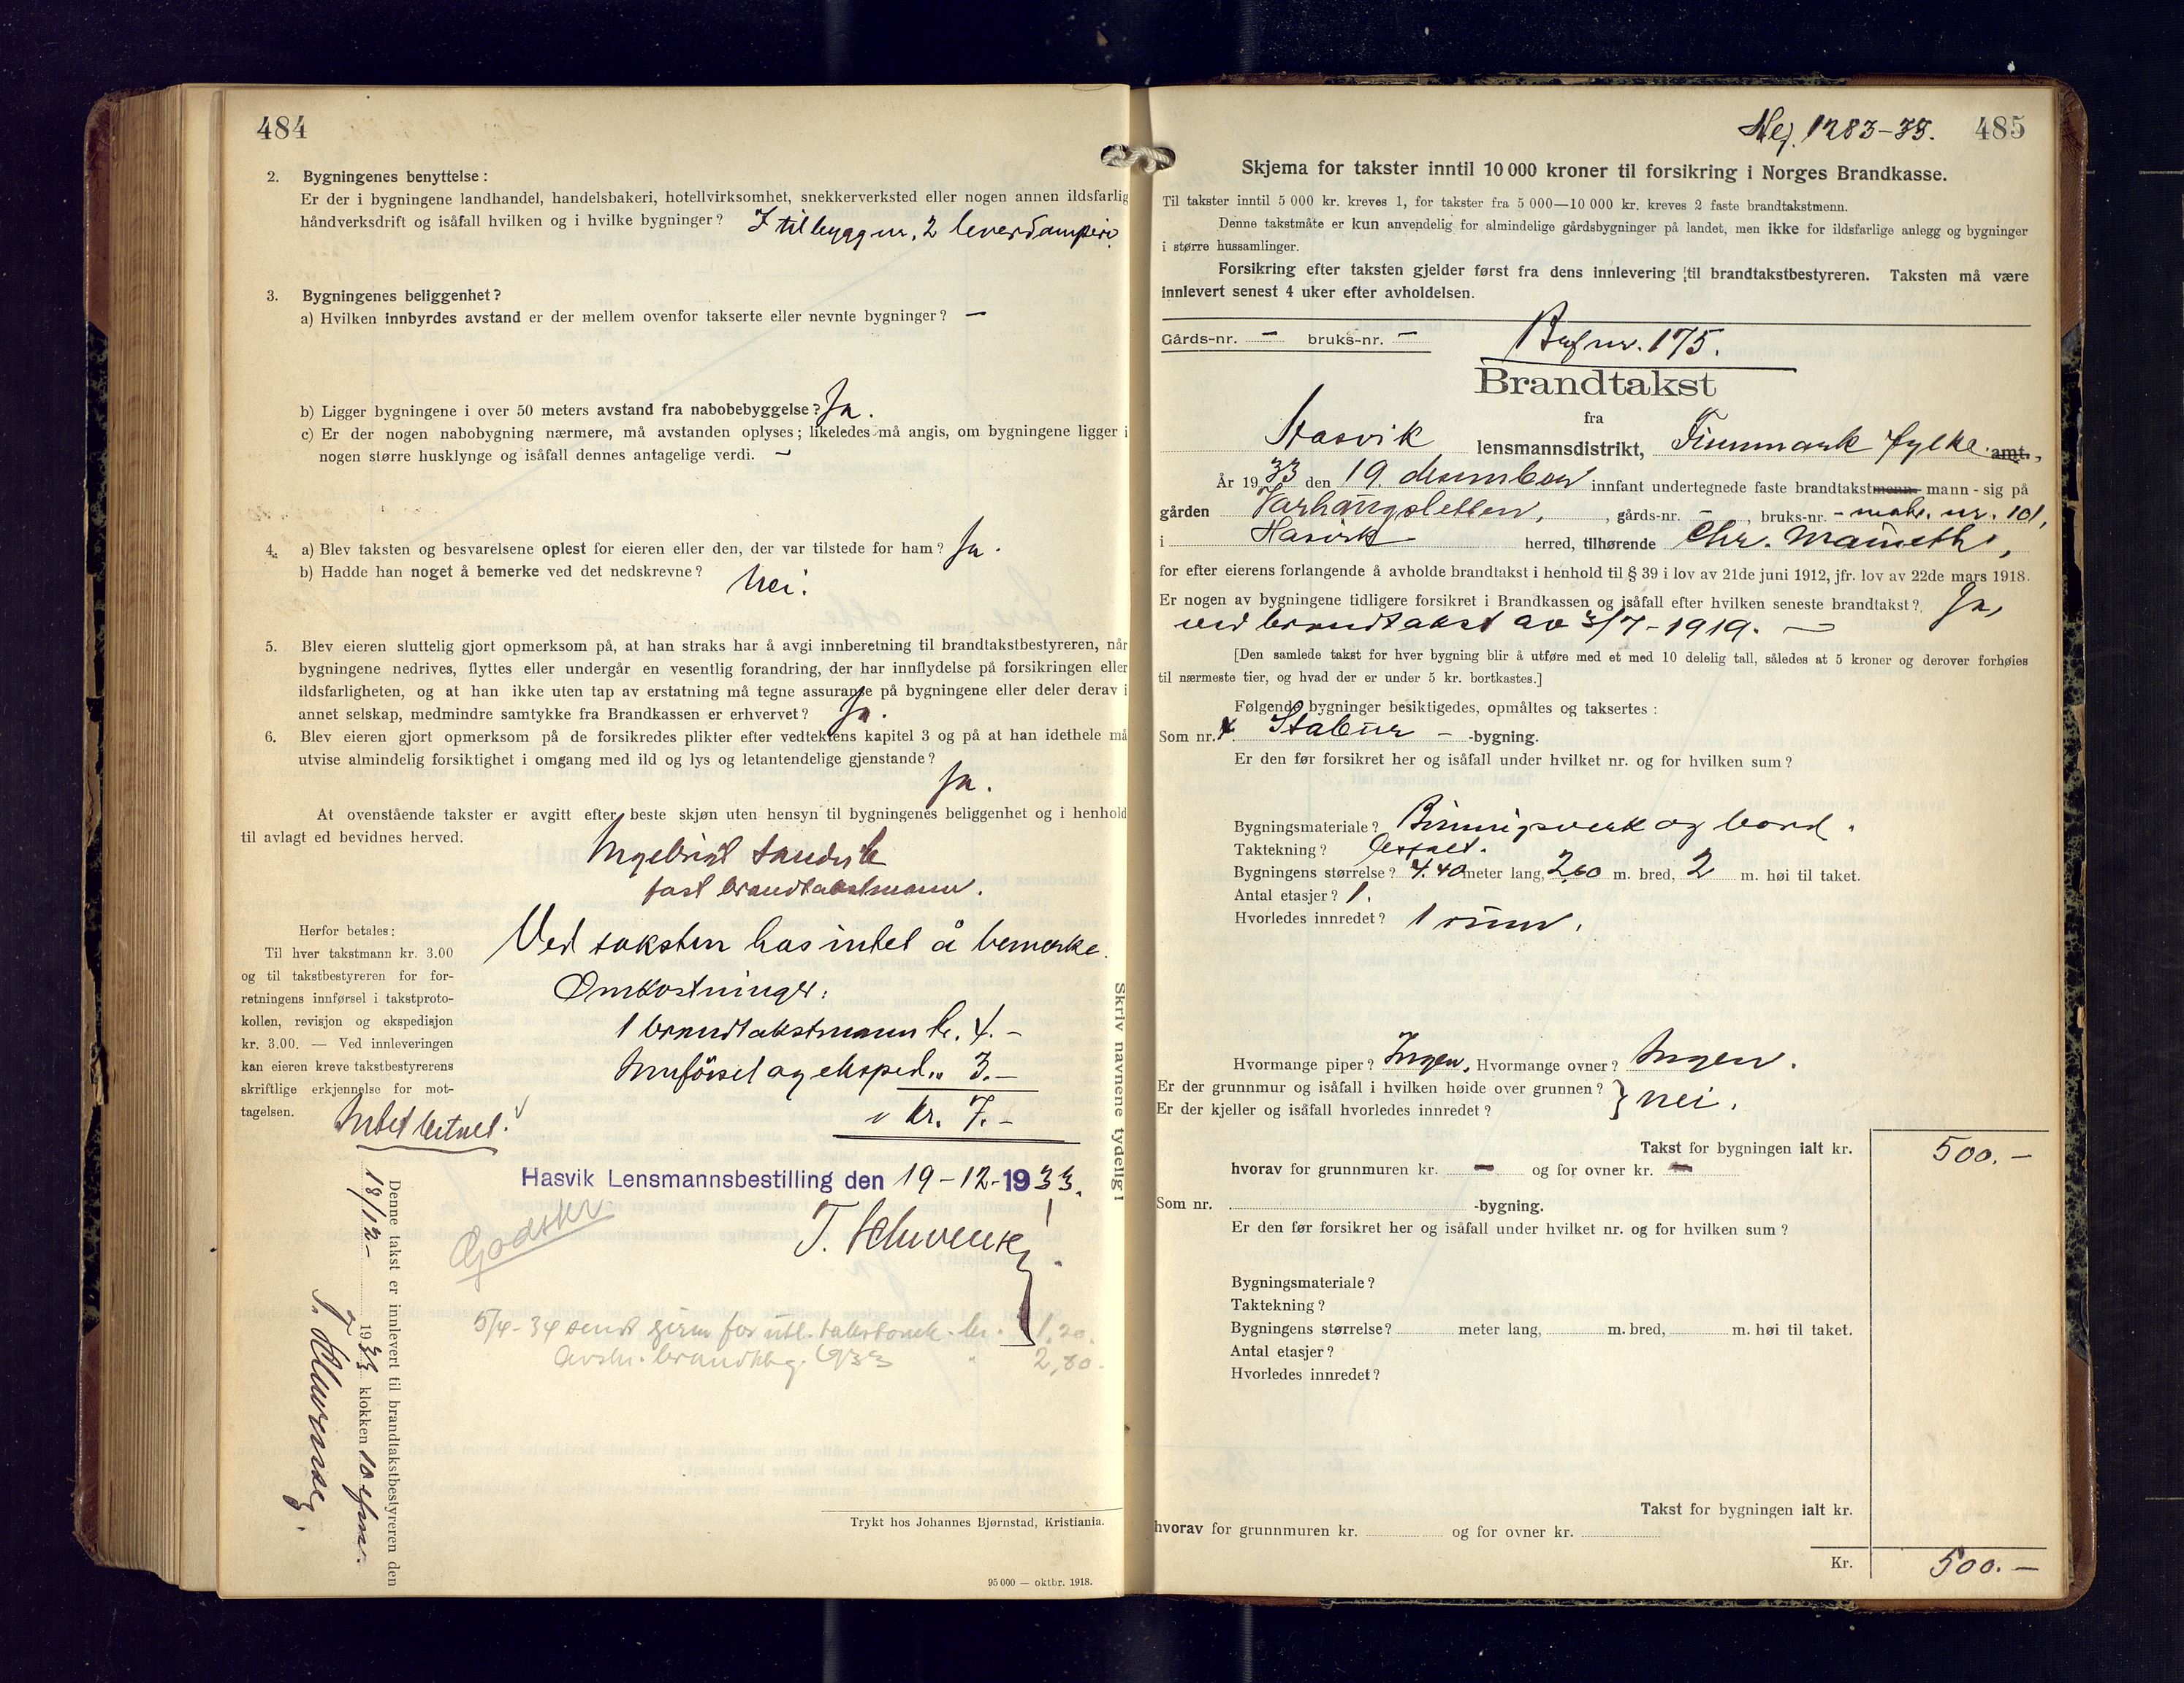 484
2. Bygningenes benyttelse:
Er der i bygningene landhandel, handelsbakeri, hotellvirksomhet, snekkerverksted eller nogen annen ildsfarlig
håndverksdrift og isåfall hvilken og i hvilke bygninger? I tilbygg nr. 2 leverdamperi.
3. Bygningenes beliggenhet?
a) Hvilken innbyrdes avstand er der mellem ovenfor takserte eller nevnte bygninger? —
b) Ligger bygningene i over 50 meters avstand fra nabobebyggelse? Ja.
c) Er der nogen nabobygning nærmere, må avstanden oplyses; likeledes må angis, om bygningene ligger i
nogen større husklynge og isåfall dennes antagelige verdi. —
4. a) Blev taksten og besvarelsene oplest for eieren eller den, der var tilstede for ham? Ja.
b) Hadde han noget å bemerke ved det nedskrevne? Nei.
5. Blev eieren sluttelig gjort opmerksom på, at han straks har å avgi innberetning til brandtakstbestyreren, når
bygningene nedrives, flyttes eller undergår en vesentlig forandring, der har innflydelse på forsikringen eller
ildsfarligheten, og at han ikke uten tap av erstatning må tegne assuranse på bygningene eller deler derav i
annet selskap, medmindre samtykke fra Brandkassen er erhvervet? Ja.
6. Blev eieren gjort opmerksom på de forsikredes plikter efter vedtektens kapitel 3 og på at han idethele må
utvise almindelig forsiktighet i omgang med ild og lys og letantendelige gjenstande?
Ja.
At ovenstående takster er avgitt efter beste skjøn uten hensyn til bygningenes beliggenhet og i henhold
til avlagt ed bevidnes herved.
Ingebrigt Sandvik
fast brandtakstmann.
Herfor betales:
Til hver takstmann kr. 3.00
og til takstbestyreren for for-
retningens innførsel i takstproto-
kollen, revisjon og ekspedisjon
kr. 3.00. — Ved innleveringen
kan eieren kreve takstbestyrerens
skriftlige erkjennelse for mot-
tagelsen.
Ved taksten has intet å bemerke.
Omkostninger:
1 brandtakstmann kr. 4.–
Innførsel og eksped. „ 3.–
kr. 7.–
Intet betalt.
Hasvik Lensmannsbestilling den 19-12-1933.
Godskr
5/4-34 sendt
2,80.
Denne takst er innlevert til brandtakstbestyreren den
19/12- 1933 klokken 10 efm.
Skriv navnene tydelig!
Trykt hos Johannes Bjørnstad, Kristiania.
95 000 — oktbr. 1918.
Mej. 1283-33. 485
Skjema for takster inntil 10 000 kroner til forsikring i Norges Brandkasse.
Til takster inntil 5 000 kr. kreves 1, for takster fra 5 000—10 000 kr. kreves 2 faste brandtakstmenn.
Denne takstmåte er kun anvendelig for almindelige gårdsbygninger på landet, men ikke for ildsfarlige anlegg og bygninger
i større hussamlinger.
Forsikring efter taksten gjelder først fra dens innlevering til brandtakstbestyreren. Taksten må være
innlevert senest 4 uker efter avholdelsen.
Gårds-nr. – bruks-nr. –
nr. 175.
Brandtakst
fra
Hasvik lensmannsdistrikt, Finnmark fylke amt.,
År 1933 den 19. desember innfant undertegnede faste brandtakstmenn mann - sig på
gården Varhaugsletten, , gårds-nr. – , bruks-nr. – matr. nr. 101,
i Hasvik herred, tilhørende Chr.
for efter eierens forlangende å avholde brandtakst i henhold til § 39 i lov av 21de juni 1912, jfr. lov av 22de mars 1918.
Er nogen av bygningene tidligere forsikret i Brandkassen og isåfall efter hvilken seneste brandtakst? Ja,
ved brandtakst av 3/7-1919. —
[Den samlede takst for hver bygning blir å utføre med et med 10 delelig tall, således at 5 kroner og derover forhøies
til nærmeste tier, og hvad der er under 5 kr. bortkastes.]
Følgende bygninger besiktigedes, opmåltes og taksertes:
Som nr. Stabur – -bygning.
Er den før forsikret her og isåfall under hvilket nr. og for hvilken sum?
Bygningsmateriale? Binningsverk og bord.
Taktekning?
Bygningens størrelse? 4.40 meter lang, 2,60 m. bred, 2 m. høi til taket.
Antal etasjer? 1.
Hvorledes innredet? 1 rum.
Hvormange piper? Ingen. Hvormange ovner? Ingen.
Er der grunnmur og isåfall i hvilken høide over grunnen?
Er der kjeller og isåfall hvorledes innredet? } nei.
Takst for bygningen ialt kr. 500.–
hvorav for grunnmuren kr. – og for ovner kr. –
Som nr. -bygning.
Er den før forsikret her og isåfall under hvilket nr. og for hvilken sum?
Bygningsmateriale?
Taktekning?
Bygningens størrelse? meter lang, m. bred, m. høi til taket.
Antal etasjer?
Hvorledes innredet?
Takst for bygningen ialt kr.
hvorav for grunnmuren kr. og for ovner kr.
Kr. 500.–